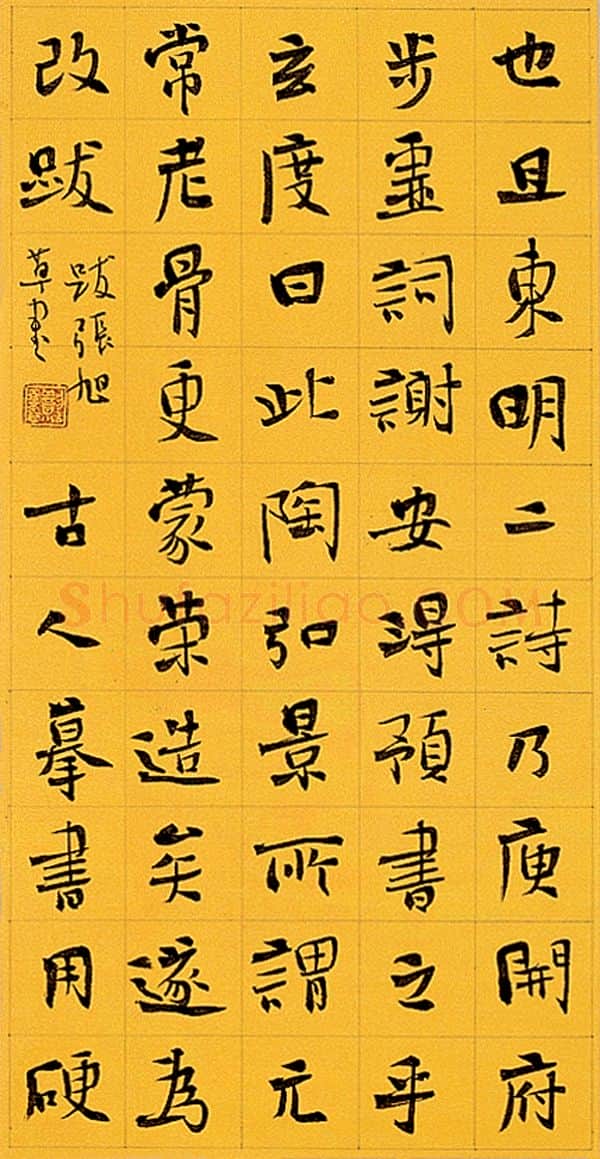 也且東明二詩乃庾開府
步虛詞謝安得預書之乎
玄度曰此陶弘景所謂元
常老骨更蒙榮造矣遂為
改跋
跋張旭
草書
古人摹書用硬
Shufaziliao.COM